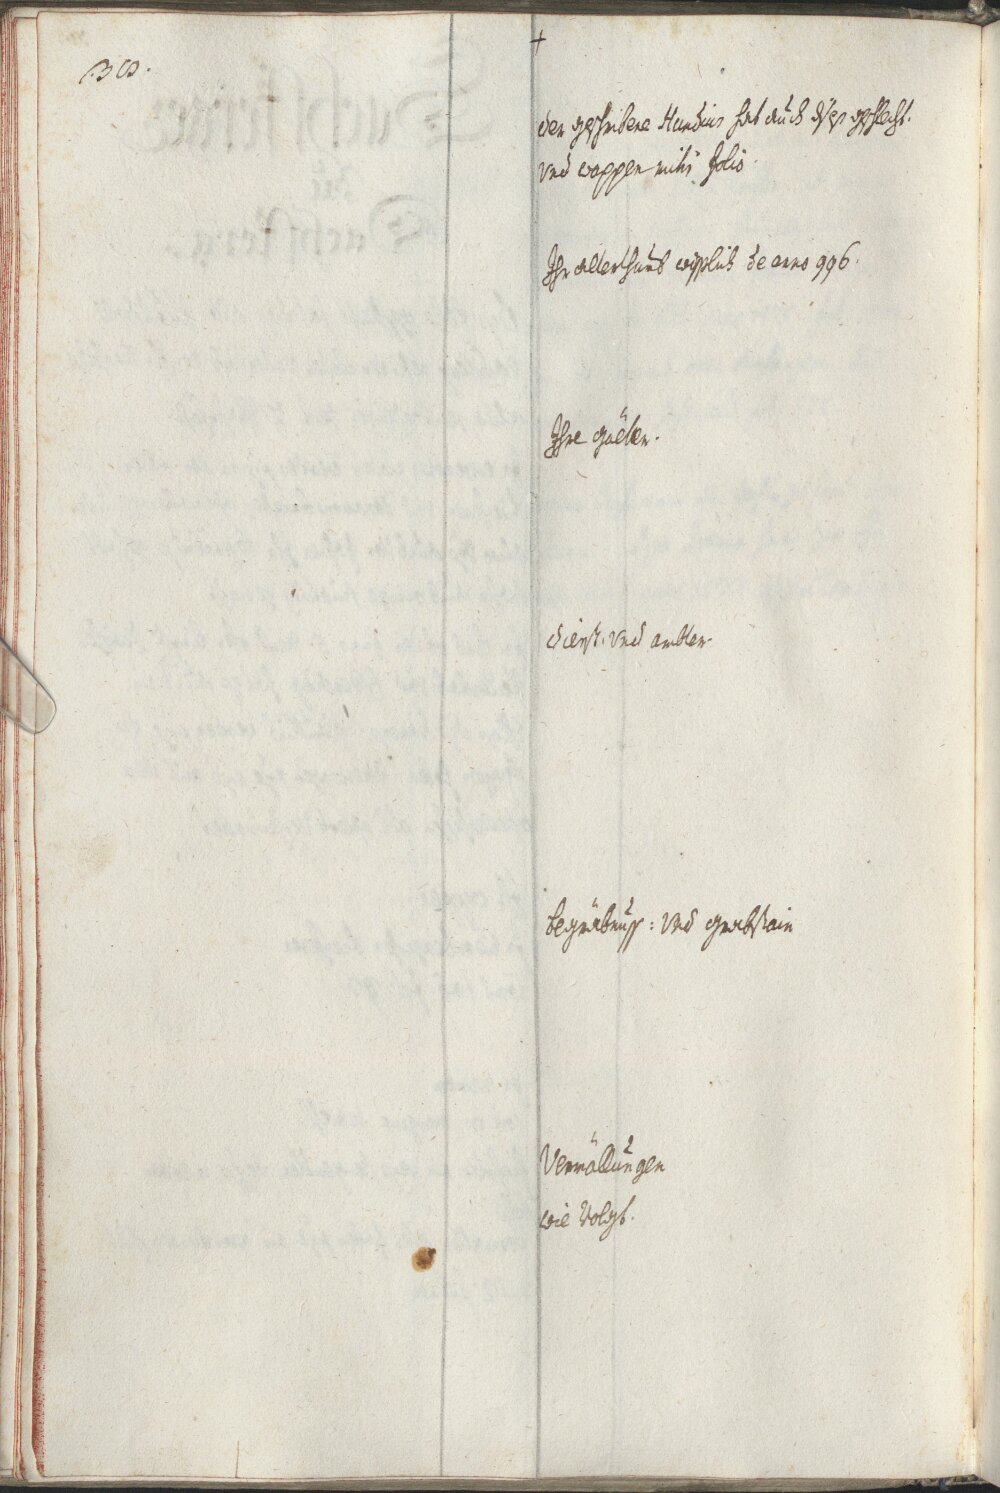 38.
†
der geschribene Hundius hat auch dises geschlecht.
vnd wappen mihi folio.
Ihr alterthumb erscheint de anno 996.
Ihre güetter.
dienst: vnd ambter.
begräbnuss: vnd grabstain
Vermällungen
wie volgt.